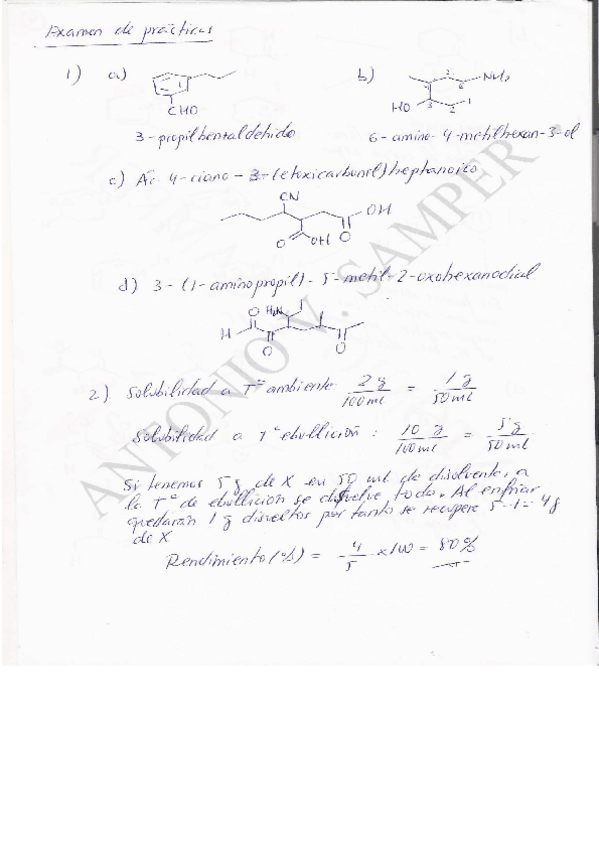 Examen de prácticas
1) a) CHO b) NH₂ HO 1 2 3 4 5 6
3-propilbenzaldehido 6-amino-4-metilhexan-3-ol
c) Ác. 4-ciano-3-(etoxicarbonil)heptanoico
CN
OH
O OH O
d) 3-(1-aminopropil)-5-metil-2-oxohexanodial
O H₂N
H
O O
2) Solubilidad a Tª ambiente 2 g / 100 ml = 1 g / 50 ml
Solubilidad a Tª ebullición: 10 g / 100 ml = 5 g / 50 ml
Si tenemos 5 g de X en 50 ml de disolvente, a
la Tª de ebullición se disuelve todo. Al enfriar
quedarán 1 g disueltos por tanto se recupera 5-1= 4 g
de X
Rendimiento (%) = 4 / 5 x 100 = 80 %
ANTONIO V. SAMPER